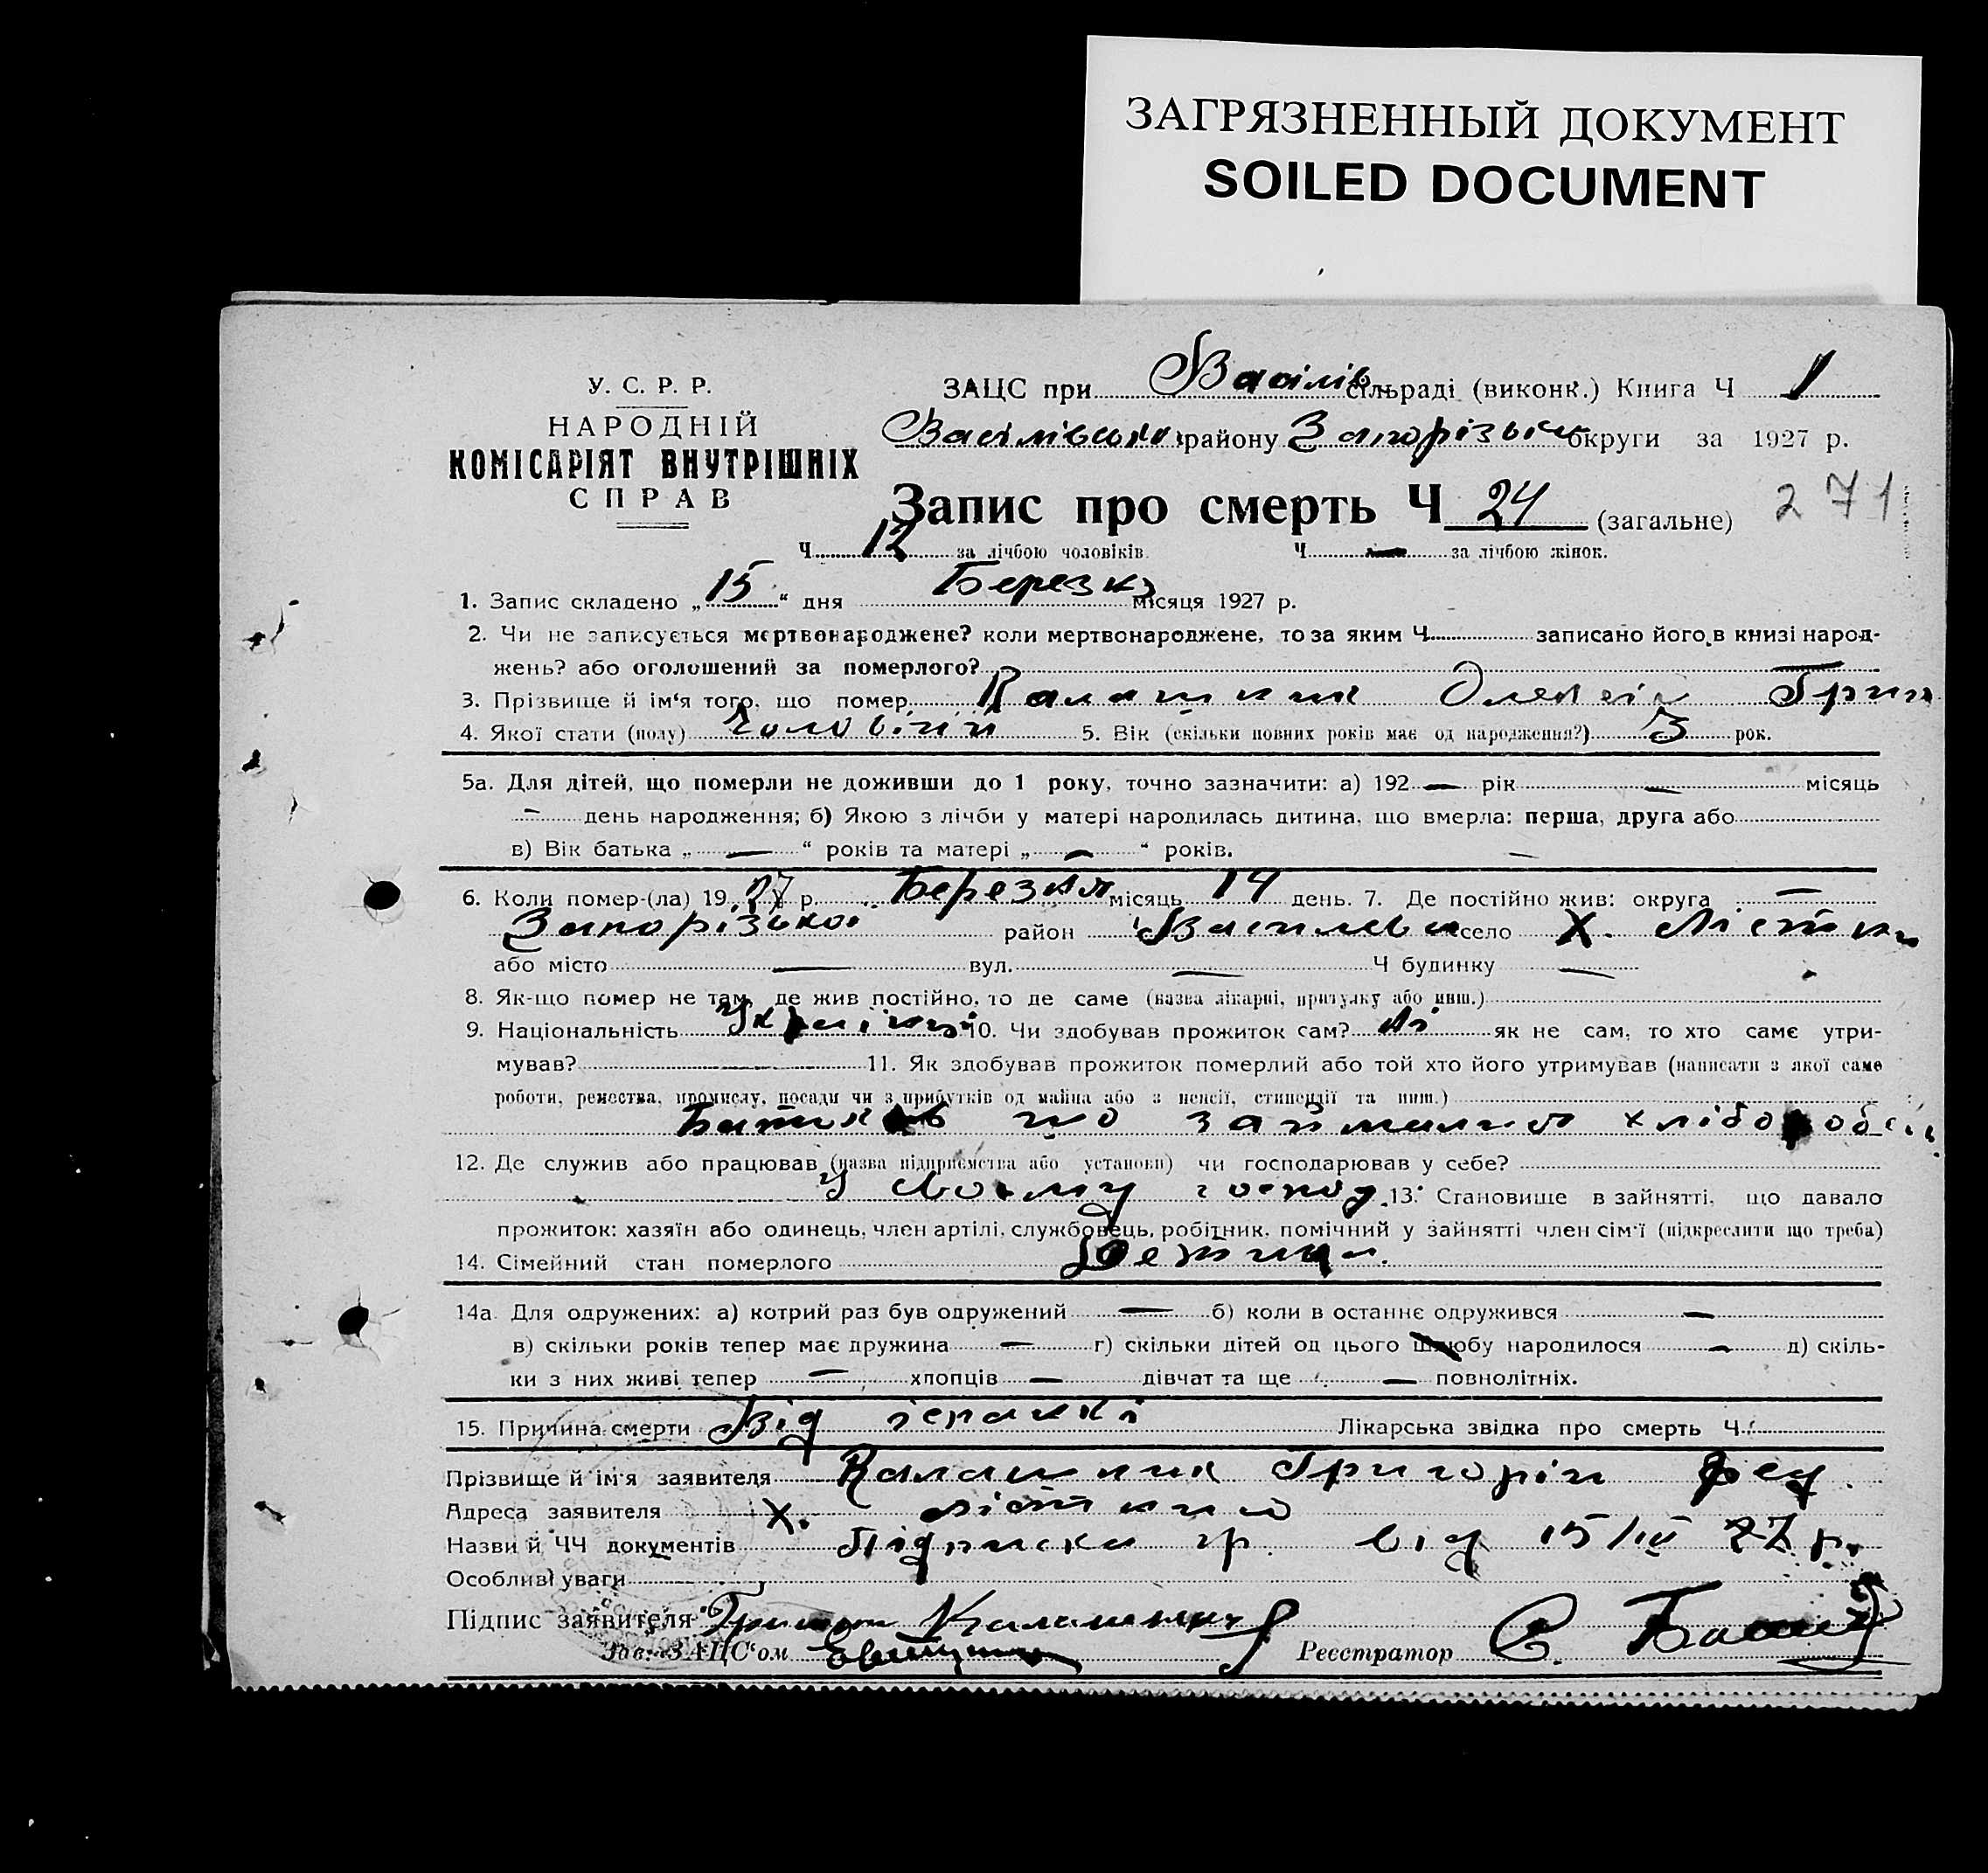 ЗАГРЯЗНЕННЫЙ ДОКУМЕНТ
SOILED DOCUMENT
У. С. Р. Р.
НАРОДНІЙ
КОМІСАРІЯТ ВНУТРІШНІХ
СПРАВ
ЗАЦС при Василів. сільраді (виконк.) Книга Ч 1
Василівськ. району Запорізьк. округи за 1927 р.
Запис про смерть Ч 24 (загальне) 271
Ч 12 за лічбою чоловіків. Ч — за лічбою жінок.
1. Запис складено „15“ дня Березня місяця 1927 р.
2. Чи не записується мертвонароджене? коли мертвонароджене, то за яким Ч. записано його в книзі народ-
жень? або оголошений за померлого?
3. Прізвище й ім'я того, що помер, Калашник Олексій Григ
4. Якої стати (полу) Чоловічий 5. Вік (скільки повних років має од народження?) 3 рок.
5а. Для дітей, що померли не доживши до 1 року, точно зазначити: а) 192 — рік — місяць
— день народження; б) Якою з лічби у матері народилась дитина, що вмерла: перша, друга або
в) Вік батька „ — “ років та матері „ — “ років. —
6. Коли помер-(ла) 1927 р. Березня місяць 14 день. 7. Де постійно жив: округа —
Запорізької район Василівськ село Х. Лісткк
або місто — вул. — Ч будинку —
8. Як-що помер не там, де жив постійно, то де саме (назва лікарні, притулку або инш.)
9. Національність Українці 10. Чи здобував прожиток сам? Ні як не сам, то хто саме утри-
мував? — 11. Як здобував прожиток померлий або той хто його утримував (написати з якої саме
роботи, ремества, промислу, посади чи з прибутків од майна або з пенсії, стипендії та инш.)
Батьків що займалися хлібороб
12. Де служив або працював (назва підприємства або установи) чи господарював у себе?
У своєму господ. 13. Становище в зайнятті, що давало
прожиток: хазяїн або одинець, член артілі, службовець, робітник, помічний у зайнятті член сім'ї (підкреслити що треба)
14. Сімейний стан померлого Детина.
14а Для одружених: а) котрий раз був одружений — б) коли в останнє одружився —
в) скільки років тепер має дружина — г) скільки дітей од цього шлюбу народилося — д) скіль-
ки з них живі тепер — хлопців — дівчат та ще — повнолітніх.
15. Причина смерти Від іспанкі Лікарська звідка про смерть Ч.
Прізвище й ім'я заявителя Калашник Григорій Фед.
Адреса заявителя х.
Назви й ЧЧ документів Підписка гр. від 15/III 27 р.
Особливі уваги
Підпис заявителя Григор Калашник
Зав. ЗАЦС'ом Реєстратор С.